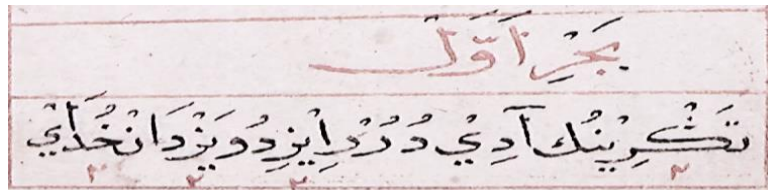 بَحْرِ اَوَّلْ
تَڭْرِيْنُكْ آدِيْ دُرُرْ اِيْزِدُ وَيَزْدَانْ خُدَايْ
٣ ٣ ٣ ٣